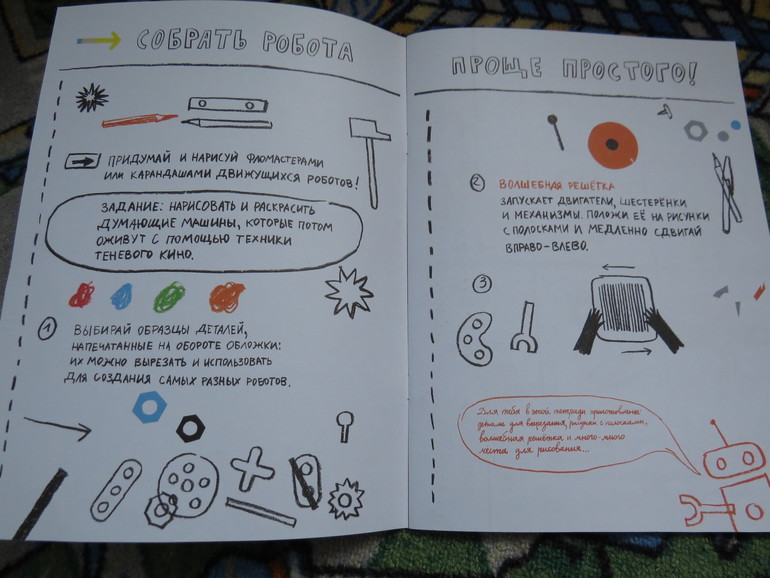 СОБРАТЬ РОБОТА
ПРИДУМАЙ И НАРИСУЙ ФЛОМАСТЕРАМИ
ИЛИ КАРАНДАШАМИ ДВИЖУЩИХСЯ РОБОТОВ!
ЗАДАНИЕ: НАРИСОВАТЬ И РАСКРАСИТЬ
ДУМАЮЩИЕ МАШИНЫ, КОТОРЫЕ ПОТОМ
ОЖИВУТ С ПОМОЩЬЮ ТЕХНИКИ
ТЕНЕВОГО КИНО.
1 ВЫБИРАЙ ОБРАЗЦЫ ДЕТАЛЕЙ,
НАПЕЧАТАННЫЕ НА ОБОРОТЕ ОБЛОЖКИ:
ИХ МОЖНО ВЫРЕЗАТЬ И ИСПОЛЬЗОВАТЬ
ДЛЯ СОЗДАНИЯ САМЫХ РАЗНЫХ РОБОТОВ.
ПРОЩЕ ПРОСТОГО!
2 ВОЛШЕБНАЯ РЕШЁТКА
ЗАПУСКАЕТ ДВИГАТЕЛИ, ШЕСТЕРЁНКИ
И МЕХАНИЗМЫ. ПОЛОЖИ ЕЁ НА РИСУНКИ
С ПОЛОСКАМИ И МЕДЛЕННО СДВИГАЙ
ВПРАВО-ВЛЕВО.
3
Для тебя в этой тетради приготовлены
детали для вырезания, рисунки с полосками,
волшебная решётка и много-много
места для рисования...